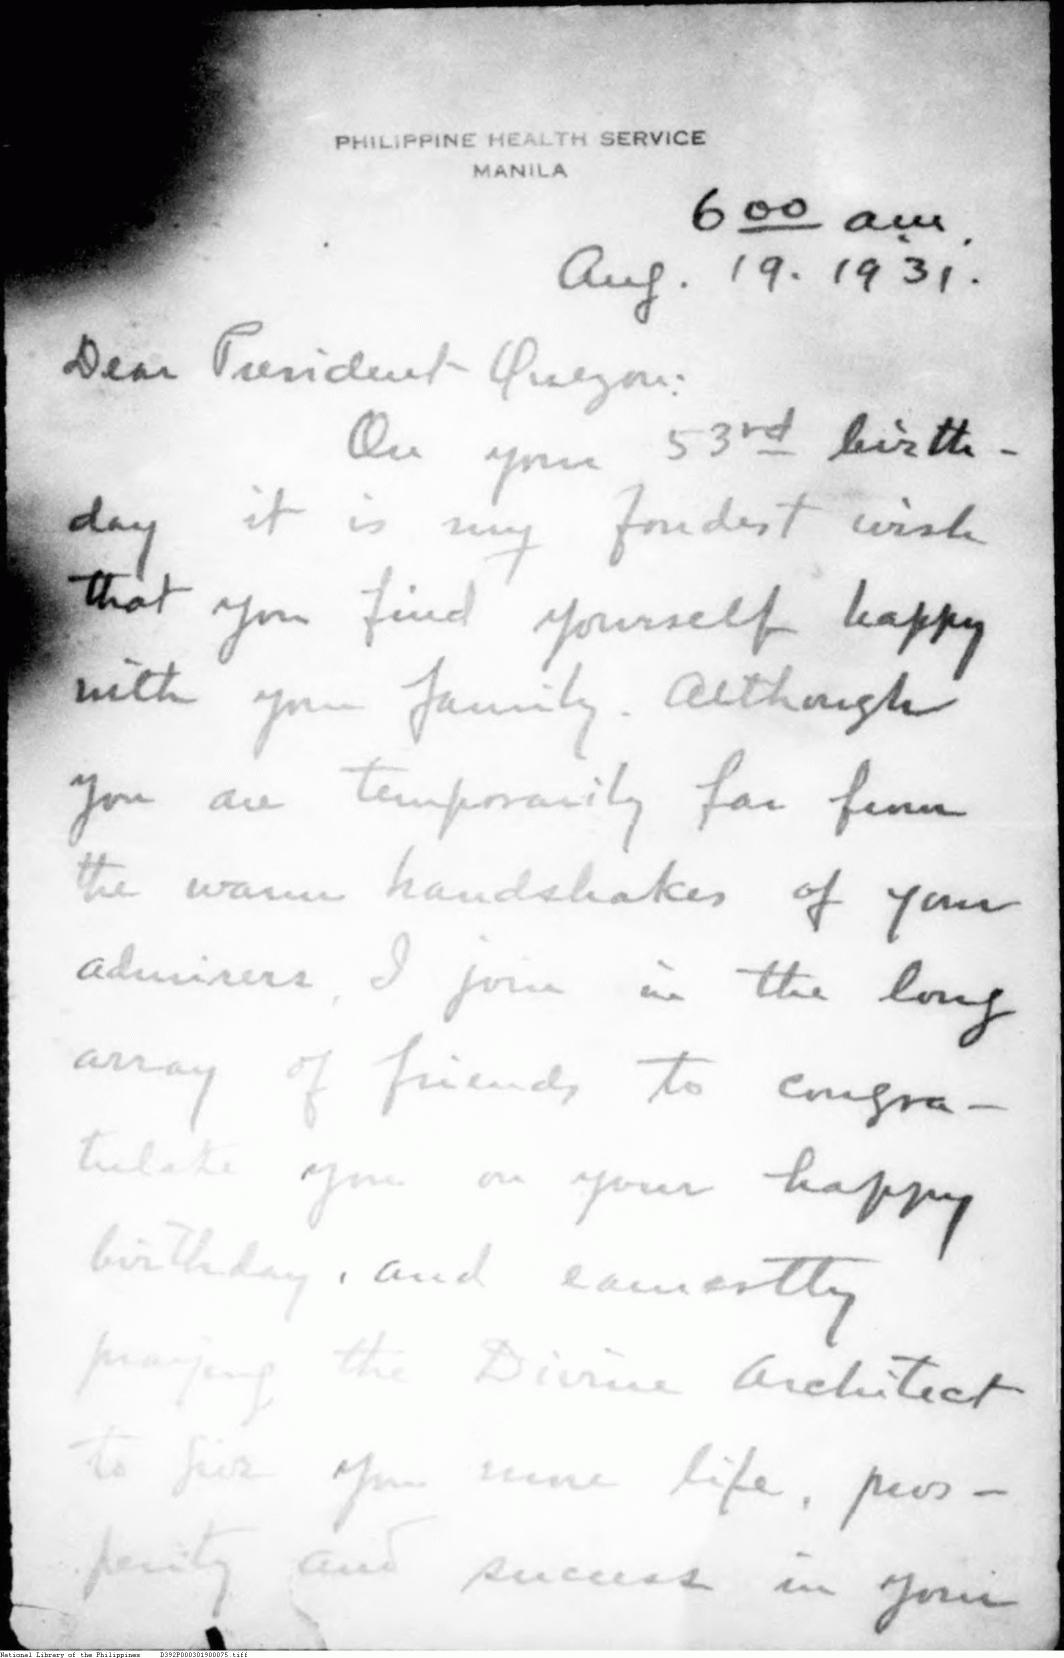 PHILIPPINE HEALTH SERVICE
MANILA
6 00 am.
Aug. 19. 1931.
Dear President Quezon:
On your 53rd birth-
day it is my fondest wish
that you find yourself happy
with your family. Although
you are temporarily far from
the warm handshakes of your
admirers, I join in the long
array of friends to congra-
tulate you on your happy
birthday, and earnestly
praying the Divine Architect
to give you more life, pros-
perity and success in your
National Library of the Philippines D392P000301900075.tiff